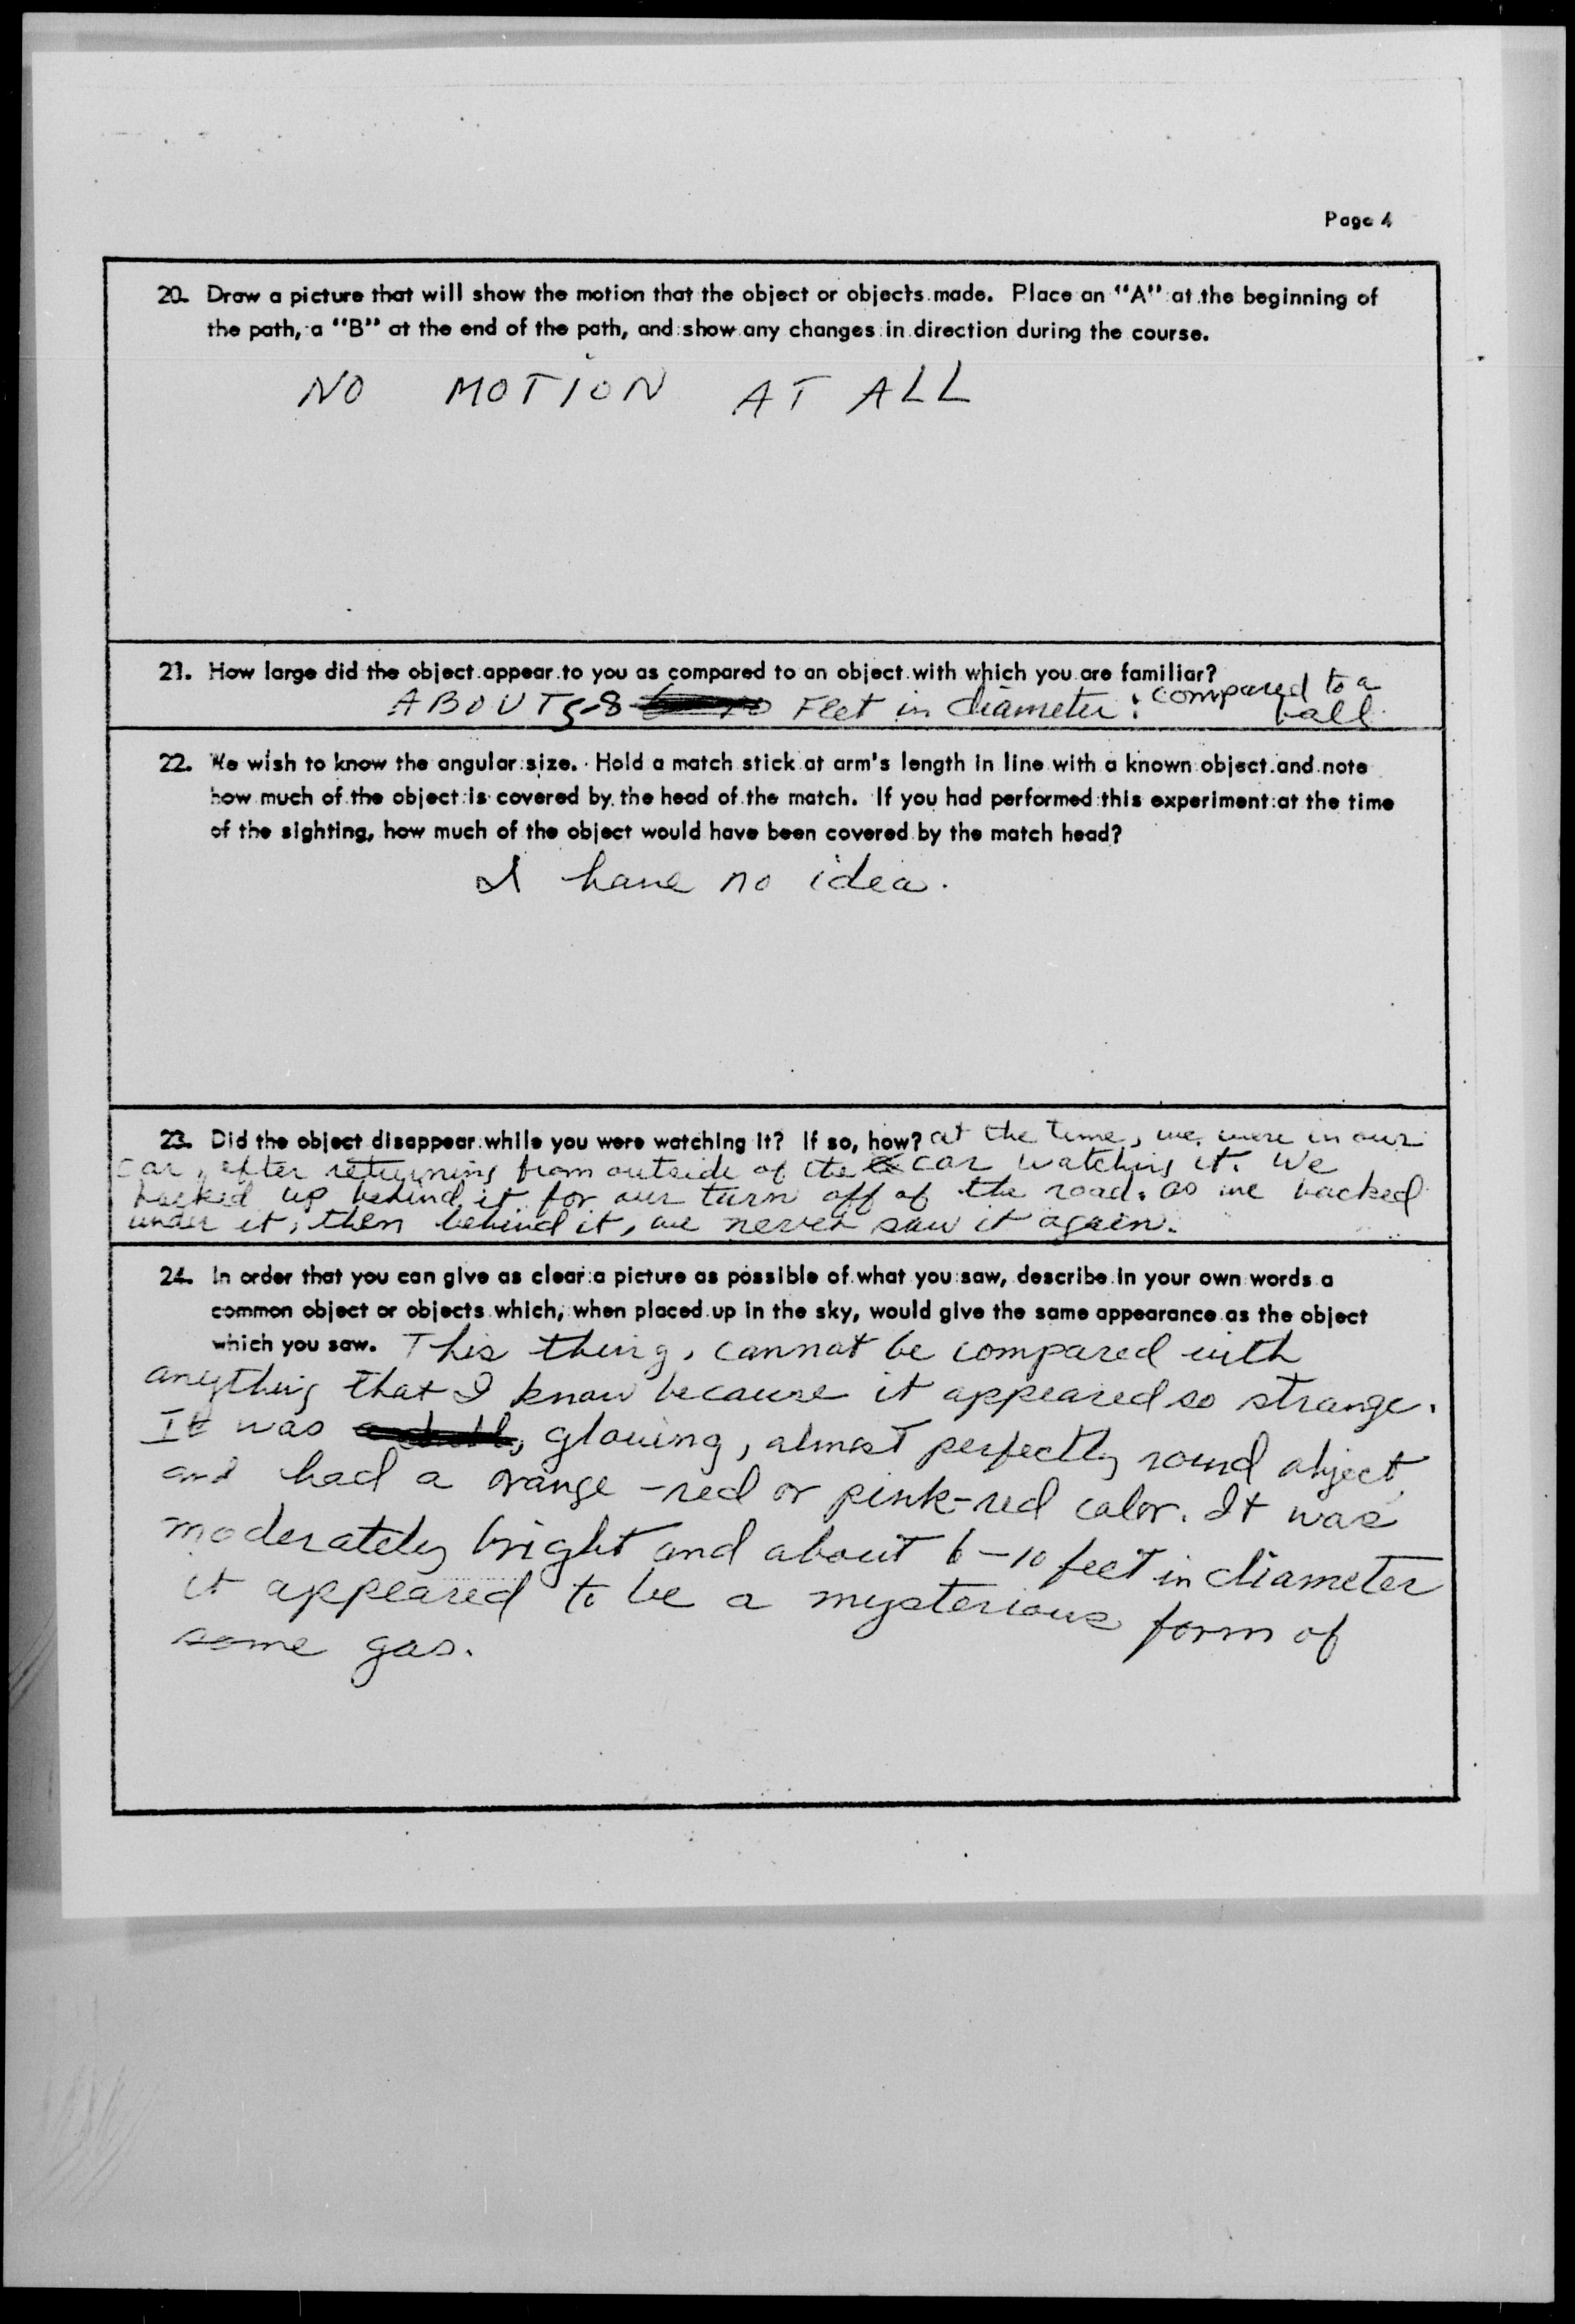 Page 4
20. Draw a picture that will show the motion that the object or objects made. Place an "A" at the beginning of
the path, a "B" at the end of the path, and show any changes in direction during the course.
NO MOTION AT ALL
21. How large did the object appear to you as compared to an object with which you are familiar?
ABOUT 5-8 FEet in diameter: compared to a
ball
22. We wish to know the angular size. Hold a match stick at arm's length in line with a known object and note
how much of the object is covered by the head of the match. If you had performed this experiment at the time
of the sighting, how much of the object would have been covered by the match head?
I have no idea.
23. Did the object disappear while you were watching it? If so, how? at the time, we were in our
car, after returning from outside of the car watching it. We
backed up behind it for our turn off of the road. as we backed
under it, then behind it, we never saw it again.
24. In order that you can give as clear a picture as possible of what you saw, describe in your own words a
common object or objects which, when placed up in the sky, would give the same appearance as the object
which you saw. This thing, cannot be compared with
anything that I know because it appeared so strange.
It was glowing, almost perfectly round object
and had a orange-red or pink-red color. It was
moderately bright and about 6-10 feet in diameter
it appeared to be a mysterious form of
some gas.